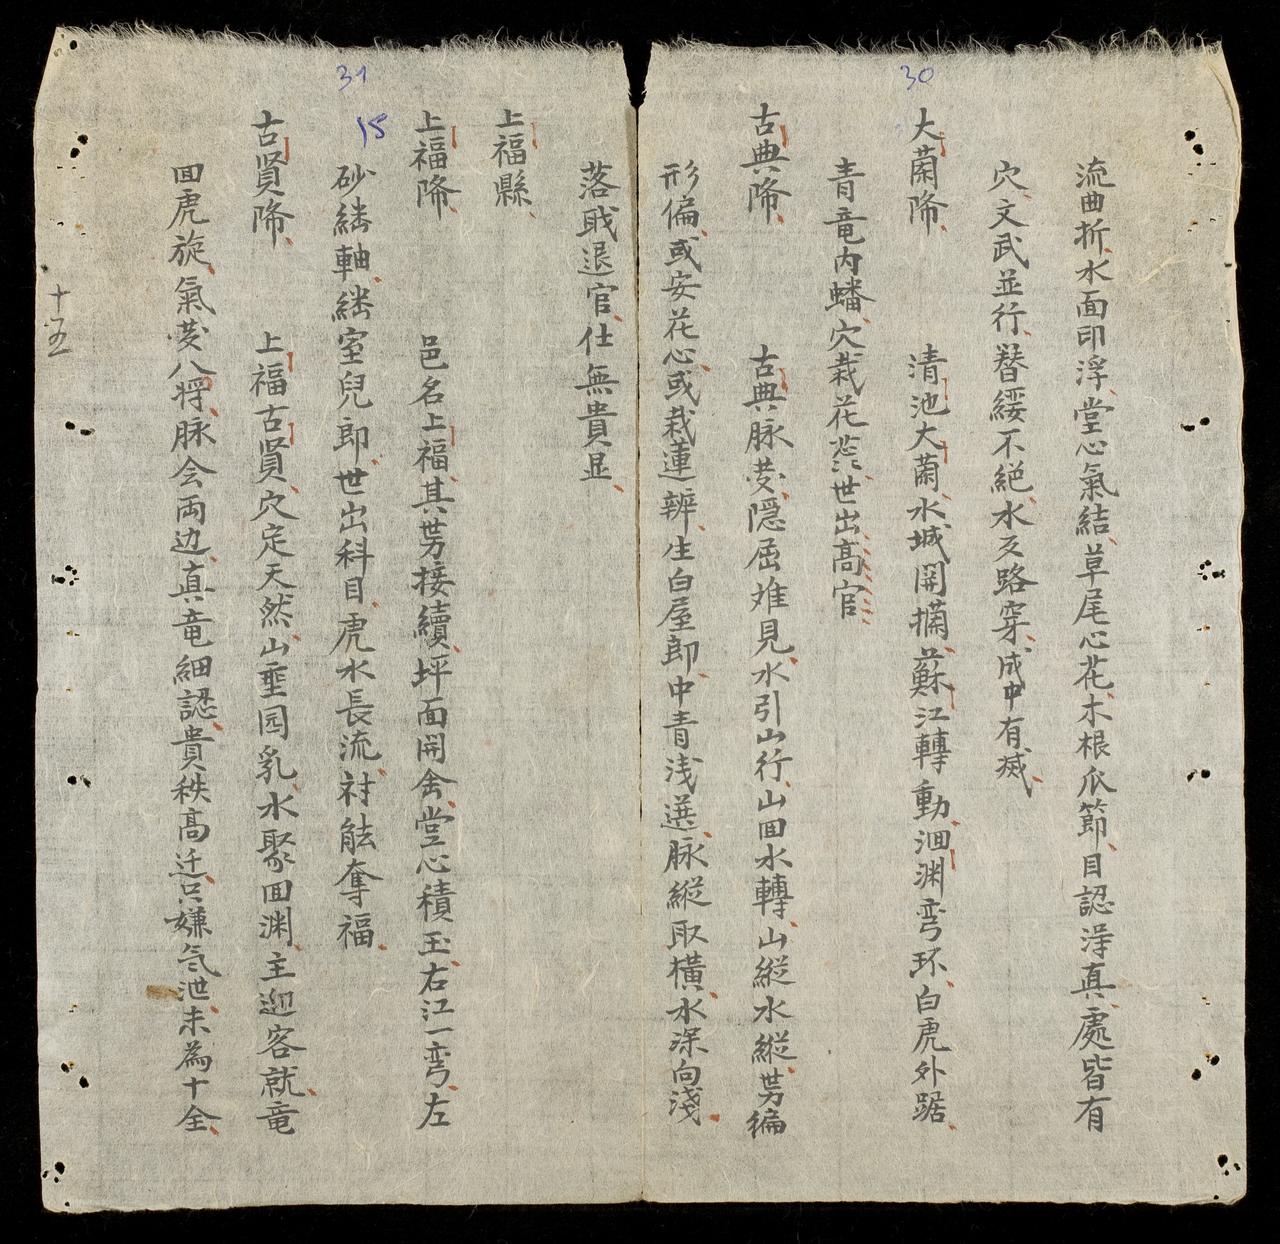 30
流曲折水面印浮堂心氣結草尾心花木根爪節目認淂真處皆有
穴文武並行簪綏不絕水交路穿成中有减
大蘭𱱇 清池大蘭水城開攔蘇江轉動洄渊弯环白虎外踞
青竜内蟠穴栽花蕊世出高官
古典𱱇 古典脉𤼵隱屈难見水引山行山回水轉山縱水縱势徧
形偏或安花心或栽蓮辨生白屋郎中青浅選脉縱取横水深向淺
落戝退官仕無貴显
31
上福縣
15
上福𱱇 邑名上福其势接續坪面開舍堂心積玉右江一弯左
砂繞軸繞室兒郎世出科目虎水長流衬能奪福
古贤𱱇 上福古贤穴定天然山垂园乳水聚回渊主迎客就竜
回虎旋氣𤼵八将脉会両边真竜細認貴秩高迁只嫌气泄未為十全
十五